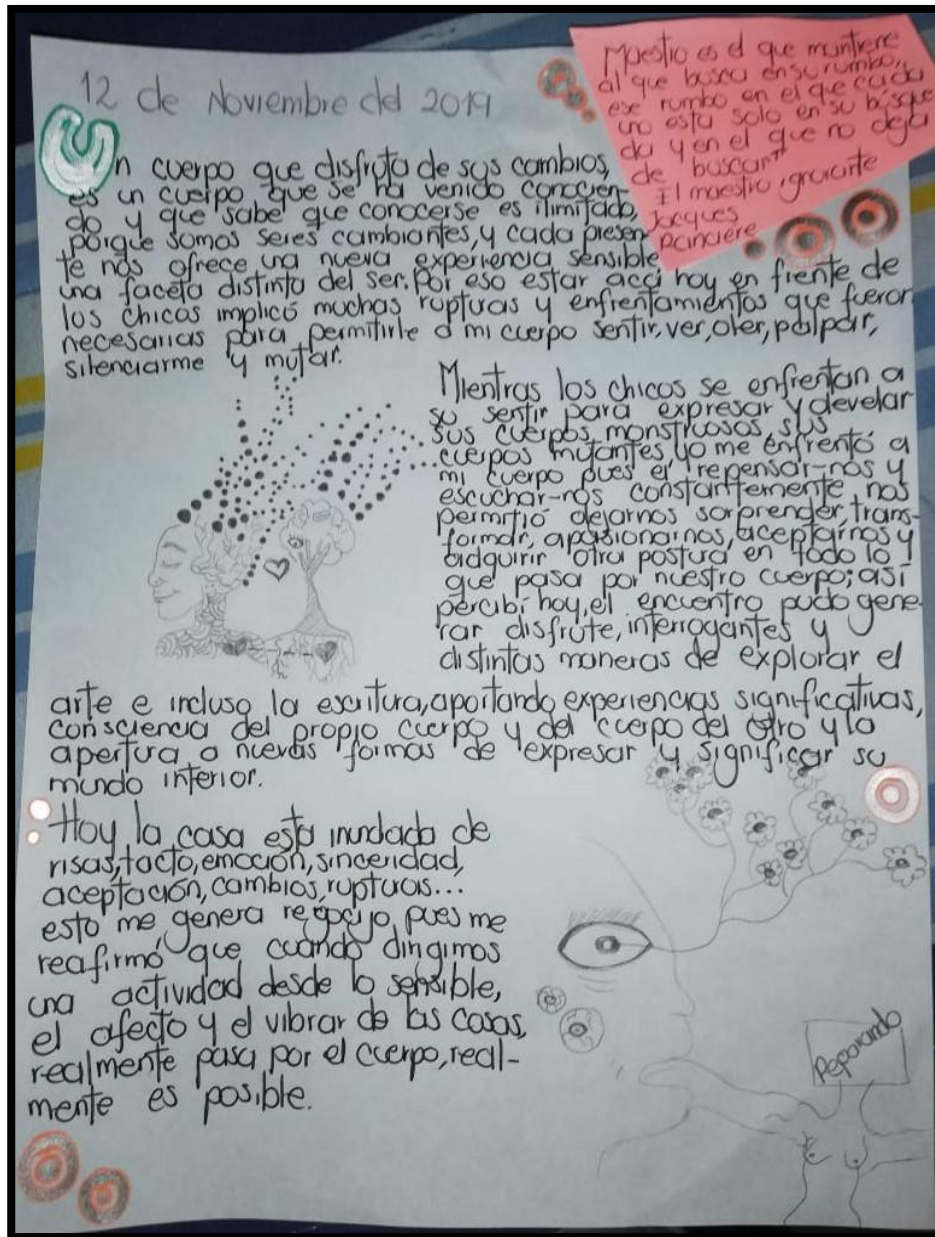 12 de Noviembre del 2019
Maestro es el que mantiene
al que busca en su rumbo,
ese rumbo en el que cada
uno esta solo en su búsque
da y en el que no deja
de buscar"
El maestro ignorante
Jacques
Ranciere
Un cuerpo que disfruta de sus cambios,
es un cuerpo que se ha venido conocien-
do y que sabe que conocerse es ilimitado,
porque somos seres cambiantes, y cada presen
te nos ofrece una nueva experiencia sensible
una faceta distinta del ser. Por eso estar acá hoy en frente de
los chicos implicó muchas rupturas y enfrentamientos que fueron
necesarias para permitirle a mi cuerpo sentir, ver, oler, palpar,
silenciarme y mutar.
Mientras los chicos se enfrentan a
su sentir para expresar y develar
sus cuerpos monstruosos, sus
cuerpos mutantes, yo me enfrentó a
mi cuerpo pues el repensar-nos y
escuchar-nos constantemente nos
permitió dejarnos sorprender, trans-
formar, apasionarnos, aceptarnos y
adquirir otra postura en todo lo
que pasa por nuestro cuerpo; así
percibí hoy, el encuentro pudo gene-
rar disfrute, interrogantes y
distintas maneras de explorar el
arte e incluso la escritura, aportando experiencias significativas,
consciencia del propio cuerpo y del cuerpo del otro y la
apertura a nuevas formas de expresar y significar su
mundo interior.
Hoy la casa esta inundada de
risas, tacto, emoción, sinceridad,
aceptación, cambios, rupturas...
esto me genera regocijo, pues me
reafirmó que cuando dirigimos
una actividad desde lo sensible,
el afecto y el vibrar de las cosas,
realmente pasa por el cuerpo, real-
mente es posible.
Reparando